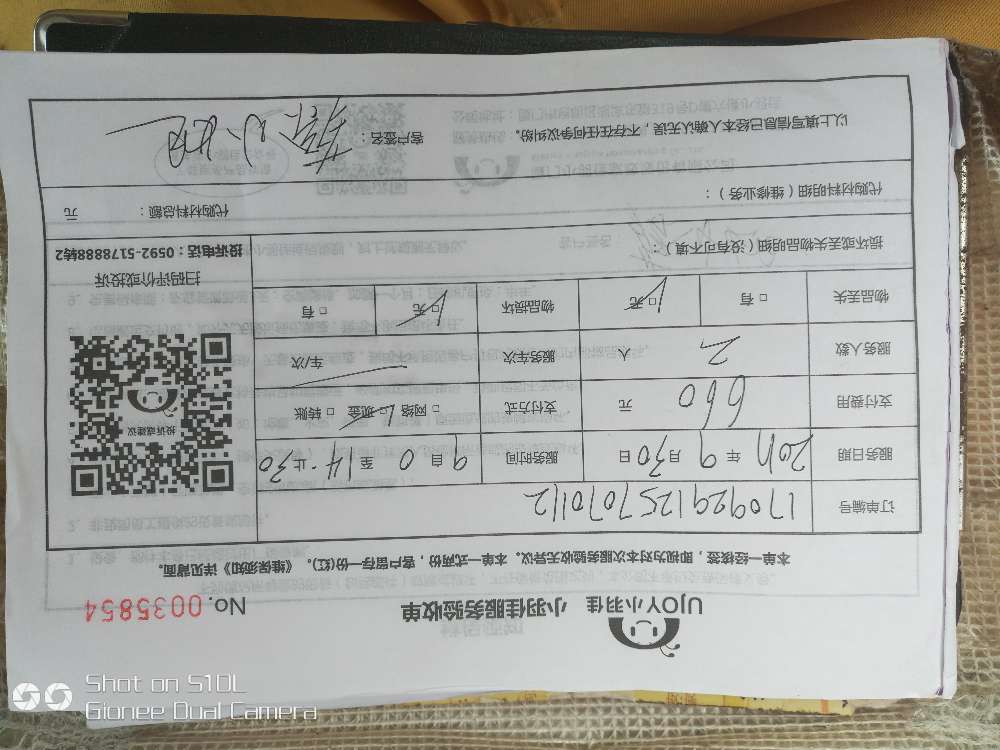 UJOY小羽佳 小羽佳服务验收单
No. 0035854
本单一经接签,即视为对本次服务验收无异议。本单一式两份,客户留存一份(红)。《维保须知》详见背面。
订单编号 1709291257070112
服务日期 2017年9月30日 服务时间 9自0至14·止30
支付费用 660元 支付方式 □网络 □现金 □转账
服务人数 2人 服务车次 车/次
物品丢失 □有 □无 物品损坏 □无 □有
投诉或建议
扫码评价或投诉
投诉电话:0592-5178888转2
损坏或丢失物品明细(没有可不填):
代购材料明细(维修业务):
代购材料总额: 元
以上填写信息已经本人确认无误,不存在任何争议纠纷。
客户签名:
Shot on S10L
Gionee Dual Camera